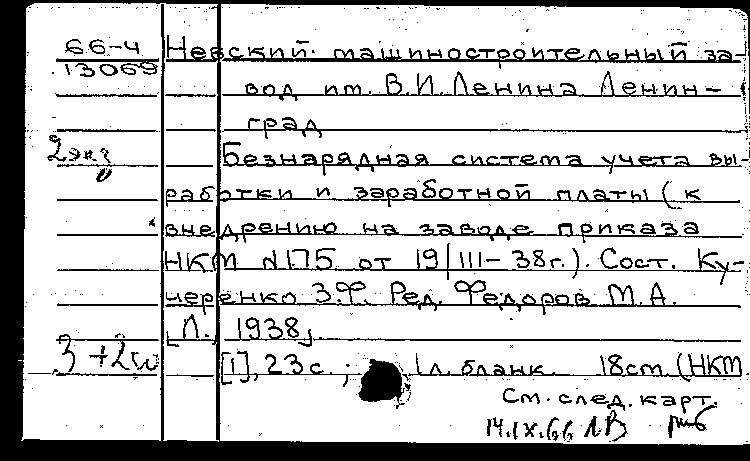 66-4 Невский машиностроительный за-
13069
вод им. В.И. Ленина Ленин-
град
2 экз
Безнарядная система учета вы-
работки и заработной платы (к
внедрению на заводе приказа
НКМ N175 от 19/III-38г.). Сост. Ку-
черенко З.Ф. Ред. Федоров М.А.
[Л., 1938]
3+2
[1], 23с.; 1л. бланк. 18см. (НКМ
См. след. карт.
14.IX.66 ЛВ